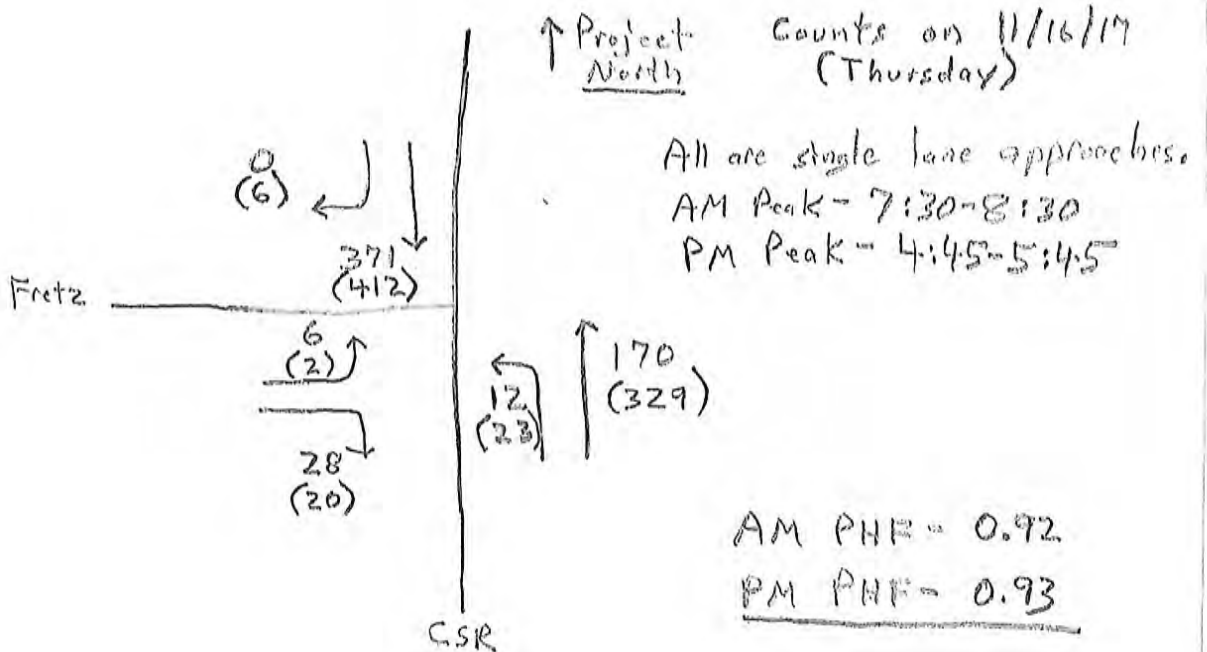 Project
North
Counts on 11/16/17
(Thursday)
All are single lane approaches.
AM Peak - 7:30-8:30
PM Peak - 4:45-5:45
0
(6)
371
(412)
Fretz
6
(2)
28
(20)
12
(23)
170
(329)
AM PHF - 0.92
PM PHF - 0.93
CSR